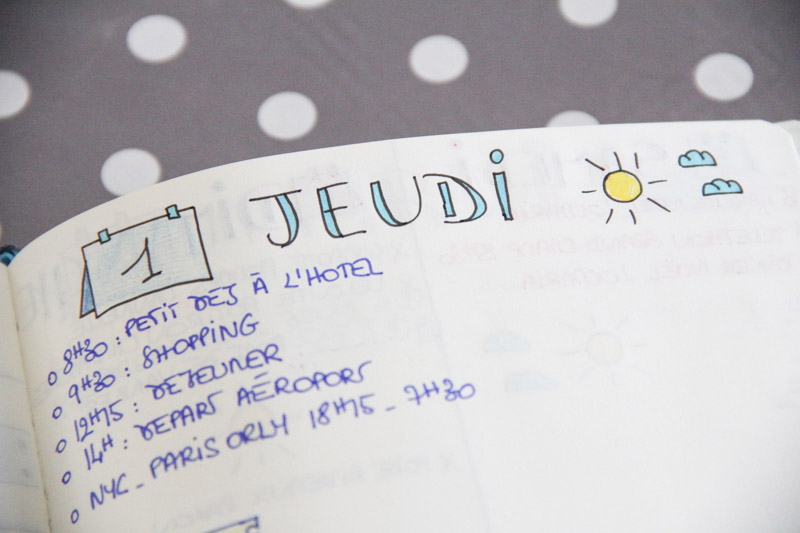 1 JEUDI
o 8H30 : PETIT DEJ À L'HOTEL
o 9H30 : SHOPPING
o 12H15 : DEJEUNER
o 14H : DEPART AÉROPORT
o NYC - PARIS ORLY 18H15 - 7H30